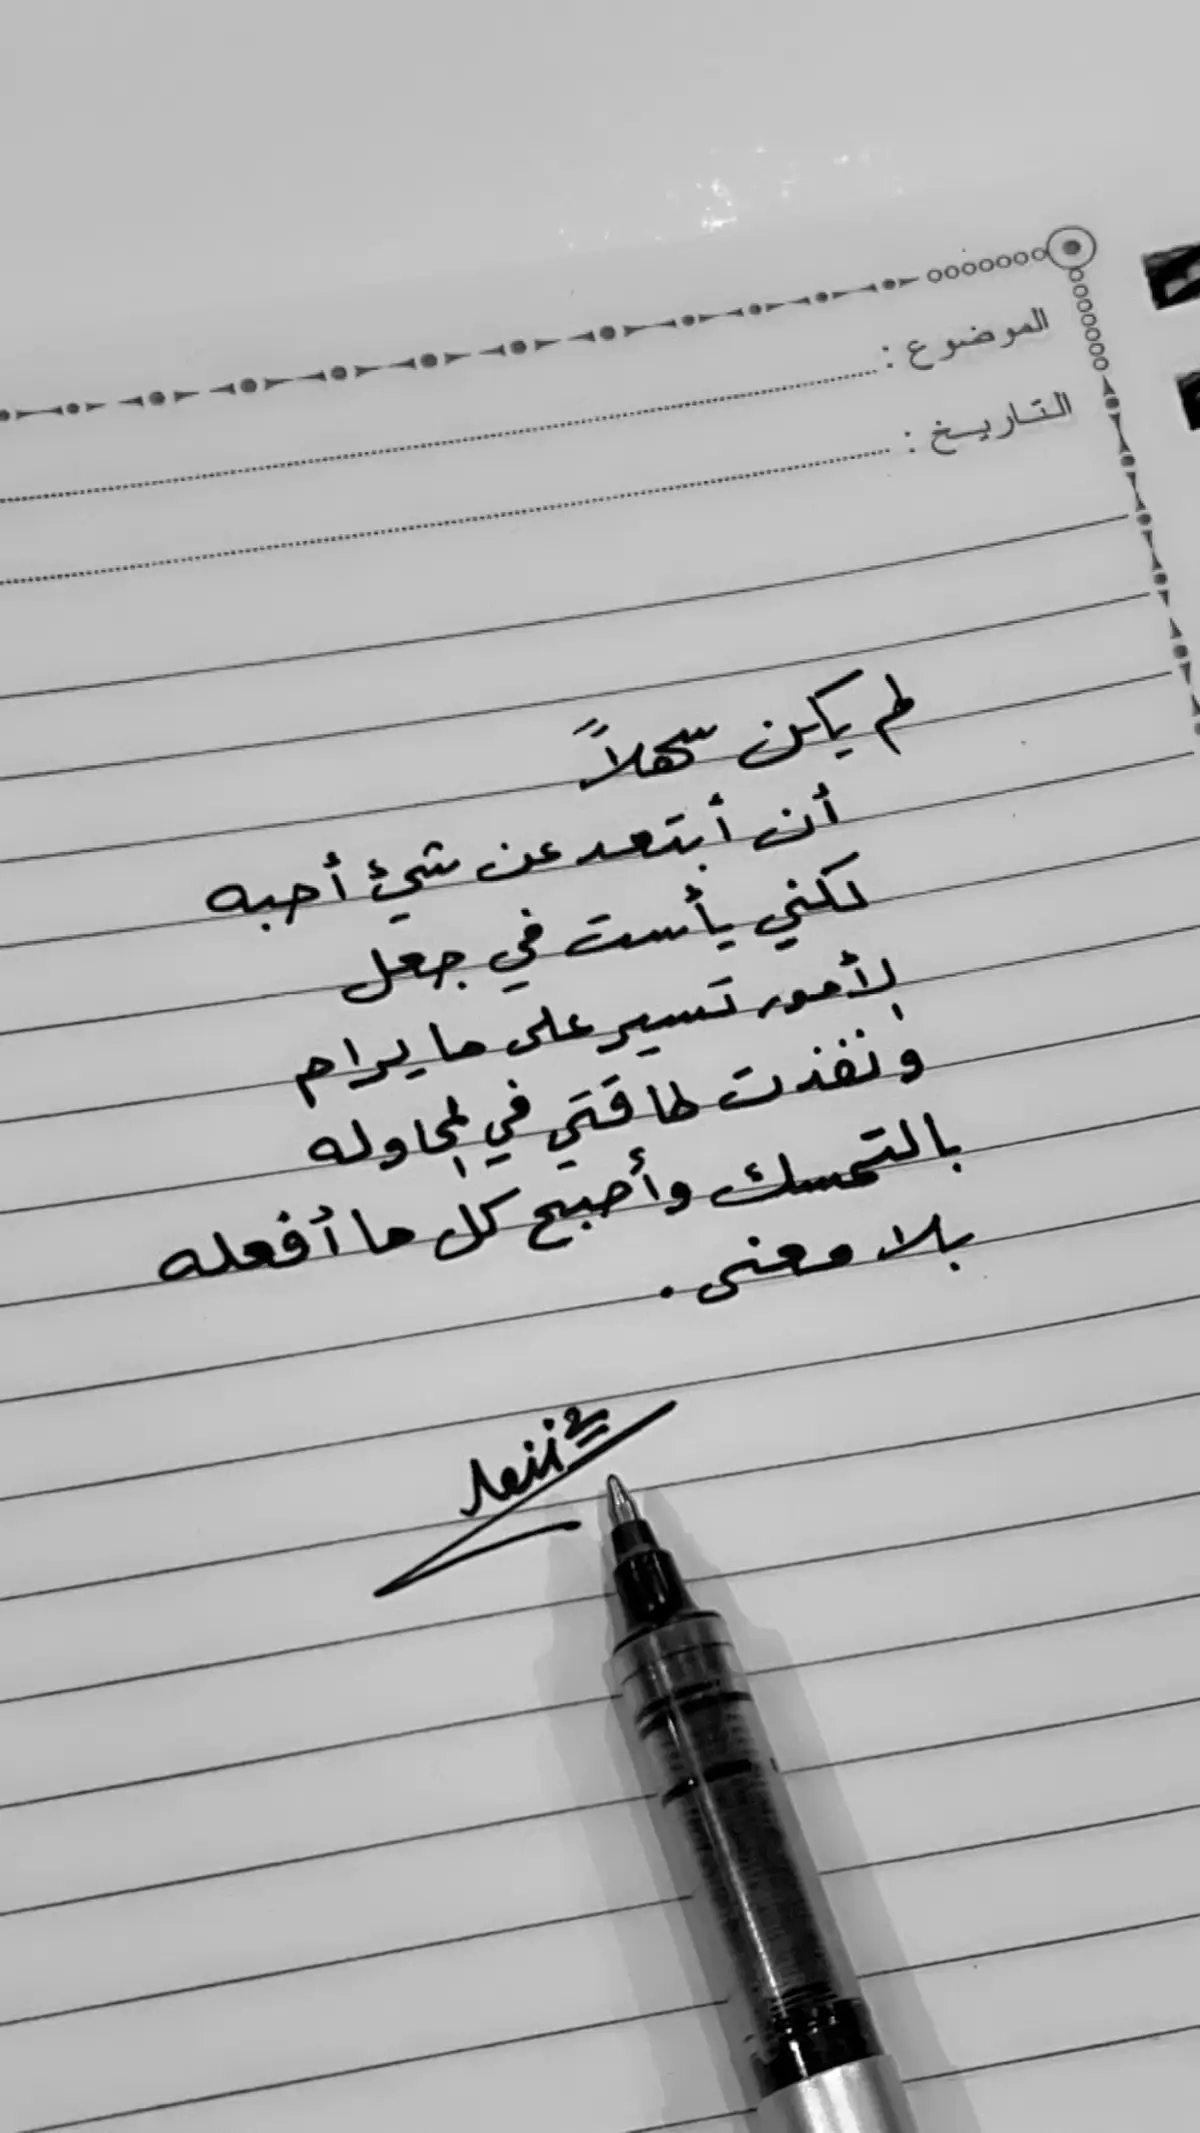 الموضوع :
التاريخ :
لم يكن سهلاً
أن أبتعد عن شيئ أحبه
لكني يأست في جعل
الأمور تسير على ما يرام
ونفذت طاقتي في المحاوله
بالتمسك وأصبح كل ما أفعله
بلا معنى .